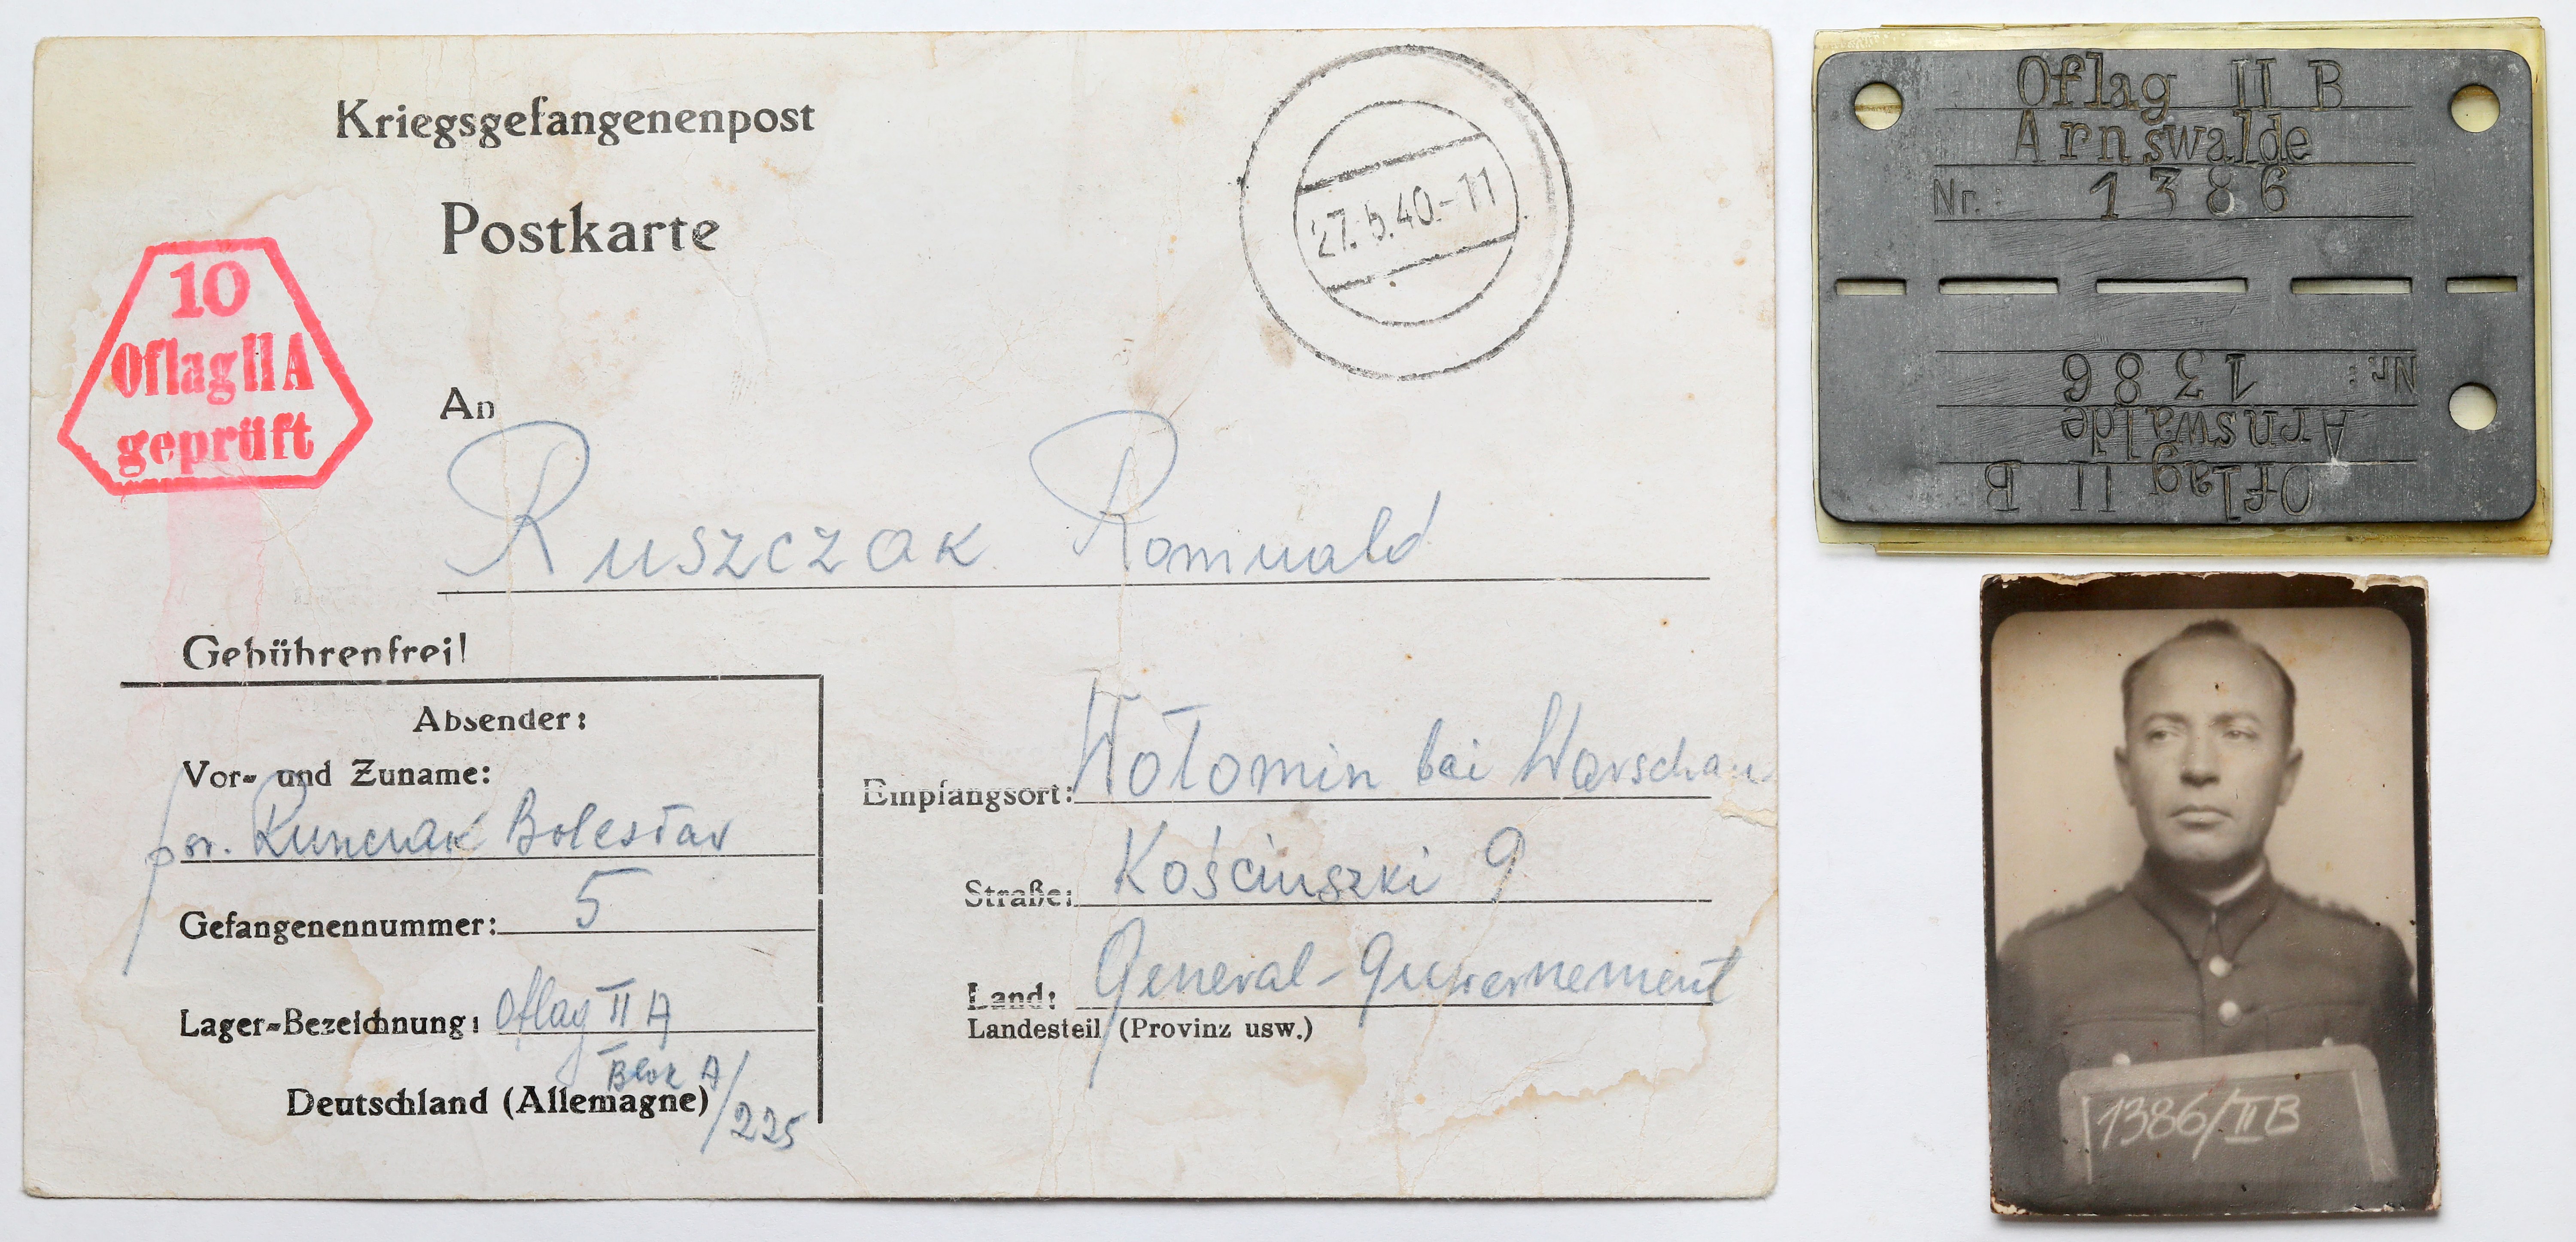 Kriegsgefangenenpost
Postkarte
27.5.40.-11
10
Oflag II A
geprüft
An
Ruszczak Romuald
Gebührenfrei!
Absender:
Vor- und Zuname:
por. Bolesław
Gefangenennummer: 5
Lager-Bezeichnung: Oflag II A
Blok A/225
Deutschland (Allemagne)
Empfangsort: Wołomin bei Warschau
Straße: Kościuszki 9
Land: General-Guvernement
Landesteil (Provinz usw.)
Oflag II B
Arnswalde
Nr. 1386
Nr. 1386
Arnswalde
Oflag II B
1386/II B